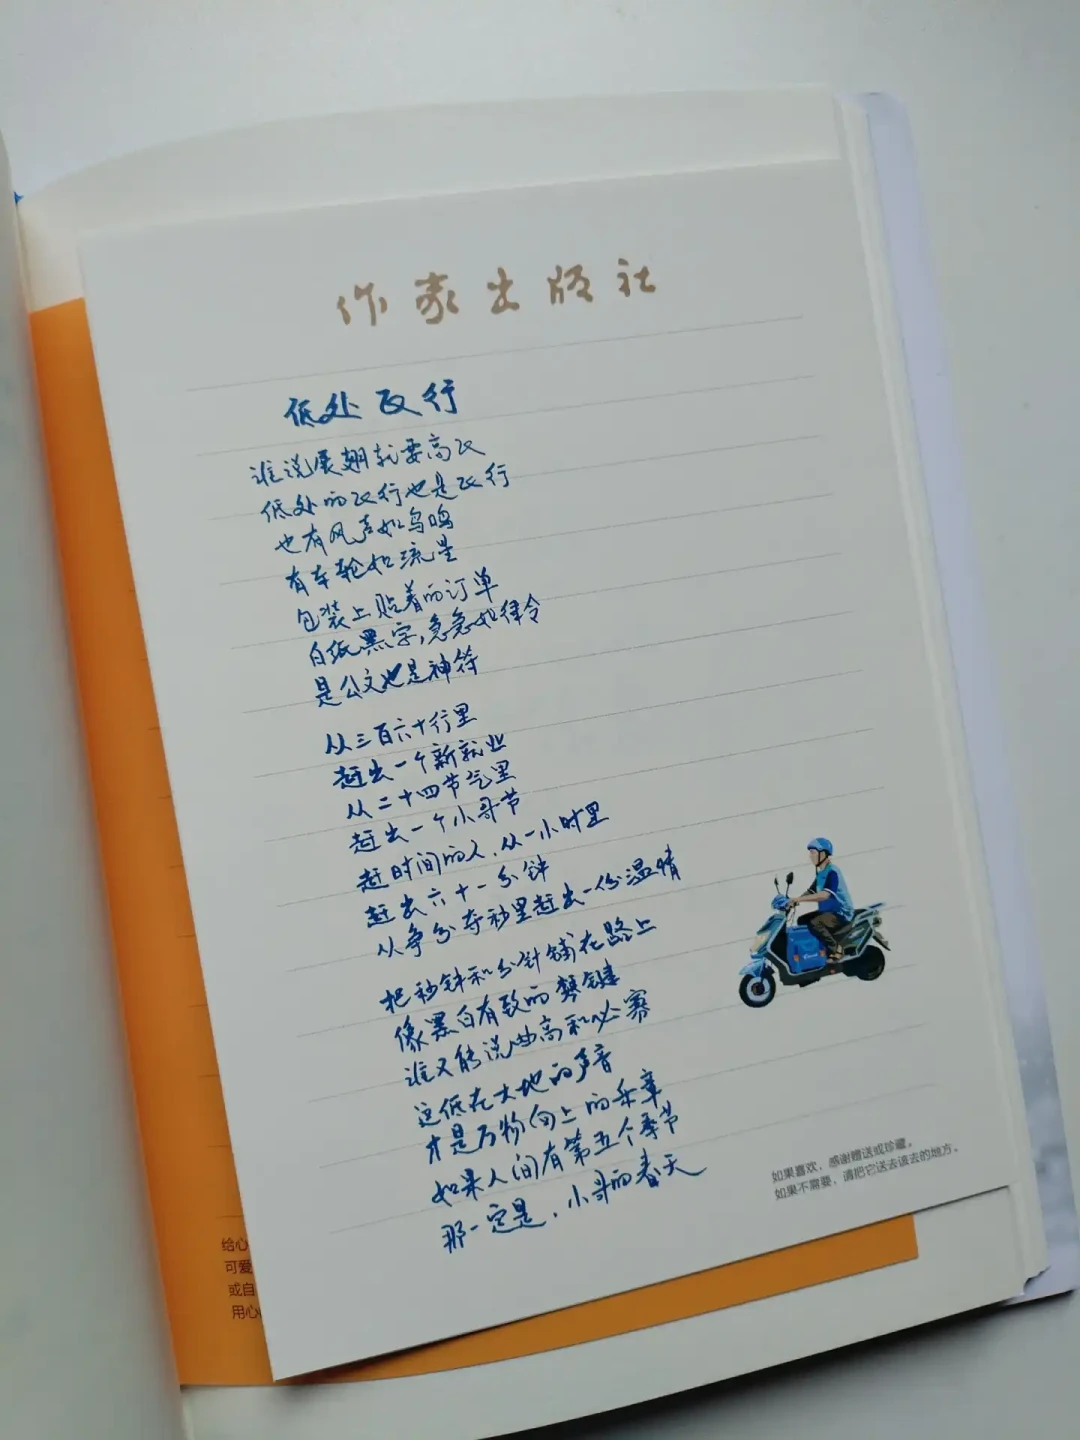 作家出版社
低处飞行
谁说展翅就要高飞
低处的飞行也是飞行
也有风声如鸟鸣
有车轮如流星
包装上贴着的订单
白纸黑字,急急如律令
是公文也是神符
从三百六十行里
赶出一个新就业
从二十四节气里
赶出一个小哥节
赶时间的人,从一小时里
赶出六十一分钟
从争分夺秒里赶出一份温情
把秒针和分针铺在路上
像黑白有致的琴键
谁又能说曲高和必寡
这低在大地的声音
才是万物向上的乐章
如果人间有第五个季节
那一定是,小哥的春天
如果喜欢,感谢赠送或珍藏。
如果不需要,请把它送去该去的地方。
给心
可爱
或自
用心